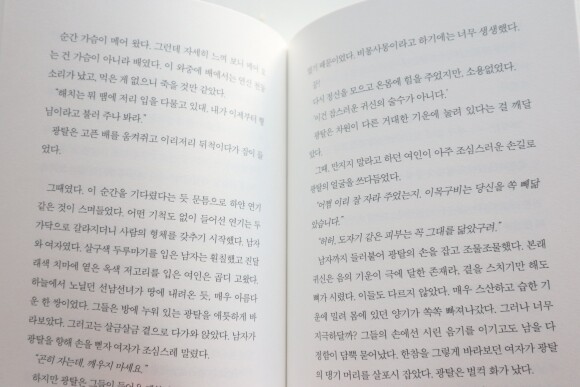 순간 가슴이 메어 왔다. 그런데 자세히 느껴 보니 메어 오
는 건 가슴이 아니라 배였다. 이 와중에 배에서는 연신
소리가 났고, 먹은 게 없으니 죽을 것만 같았다.
"해치는 뭐 땜에 저리 입을 다물고 있대. 내가 이제부터 형
님이라고 불러 주나 봐라."
광탈은 고픈 배를 움켜쥐고 이리저리 뒤척이다가 잠이 들
었다.
그때였다. 이 순간을 기다렸다는 듯 문틈으로 하얀 연기
같은 것이 스며들었다. 어떤 기척도 없이 들어선 연기는 두
가닥으로 갈라지더니 사람의 형체를 갖추기 시작했다. 남자
와 여자였다. 살구색 두루마기를 입은 남자는 훤칠했고 진달
래색 치마에 옅은 옥색 저고리를 입은 여인은 곱디 고왔다.
하늘에서 노닐던 선남선녀가 땅에 내려온 듯, 매우 아름다
운 한 쌍이었다. 그들은 방에 누워 있는 광탈을 애틋하게 바
라보았다. 그러고는 살금살금 곁으로 다가와 앉았다. 남자가
광탈을 향해 손을 뻗자 여자가 조심스레 말렸다.
"곤히 자는데, 깨우지 마세요."
하지만 광탈은 그들이 들어올
때문이었다. 비몽사몽이라고 하기에는 너무 생생했다.
다시 정신을 모으고 온몸에 힘을 주었지만, 소용없었다.
'이건 잡스러운 귀신의 술수가 아니다.'
광탈은 차원이 다른 거대한 기운에 눌려 있다는 걸 깨달
았다.
그때, 만지지 말라고 하던 여인이 아주 조심스러운 손길로
광탈의 얼굴을 쓰다듬었다.
"어쩜 이리 잘 자라 주었는지. 이목구비는 당신을 쏙 빼닮
았습니다."
"허허, 도자기 같은 피부는 꼭 그대를 닮았구려."
남자까지 들러붙어 광탈의 손을 잡고 조물조물했다. 본래
귀신은 음의 기운이 극에 달한 존재라, 곁을 스치기만 해도
뼈가 시렸다. 이들도 다르지 않았다. 매우 스산하고 습한 기
운에 밀려 몸에 있던 양기가 쪽쪽 빠져나갔다. 그러나 너무
지극하달까? 그들의 손에선 시린 음기를 이기고도 남을 다
정함이 담뿍 묻어났다. 한참을 그렇게 바라보던 여자가 광탈
의 댕기 머리를 살포시 잡았다. 광탈은 벌컥 화가 났다.